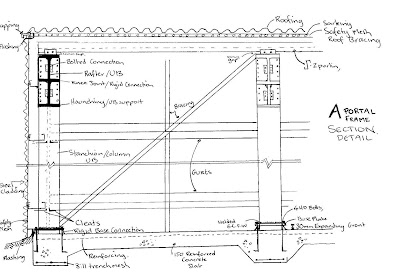 Roofing
Sarking
Safety Mesh
Roof Bracing
Flashing
Bolted Connection
Rafter/UB
Knee Joint/Rigid Connection
Haunching/UB support
Z purlin
bracing
A PORTAL
FRAME
SECTION
DETAIL
Stanchion/Column
UB
Girts
Steel
Cladding
Cleats
Rigid Base Connection
Flashing
Reinforcing
trenchmesh
150 Reinforced
Concrete
Slab
Welded
Bolts
Base Plate
30mm Expanding Grout